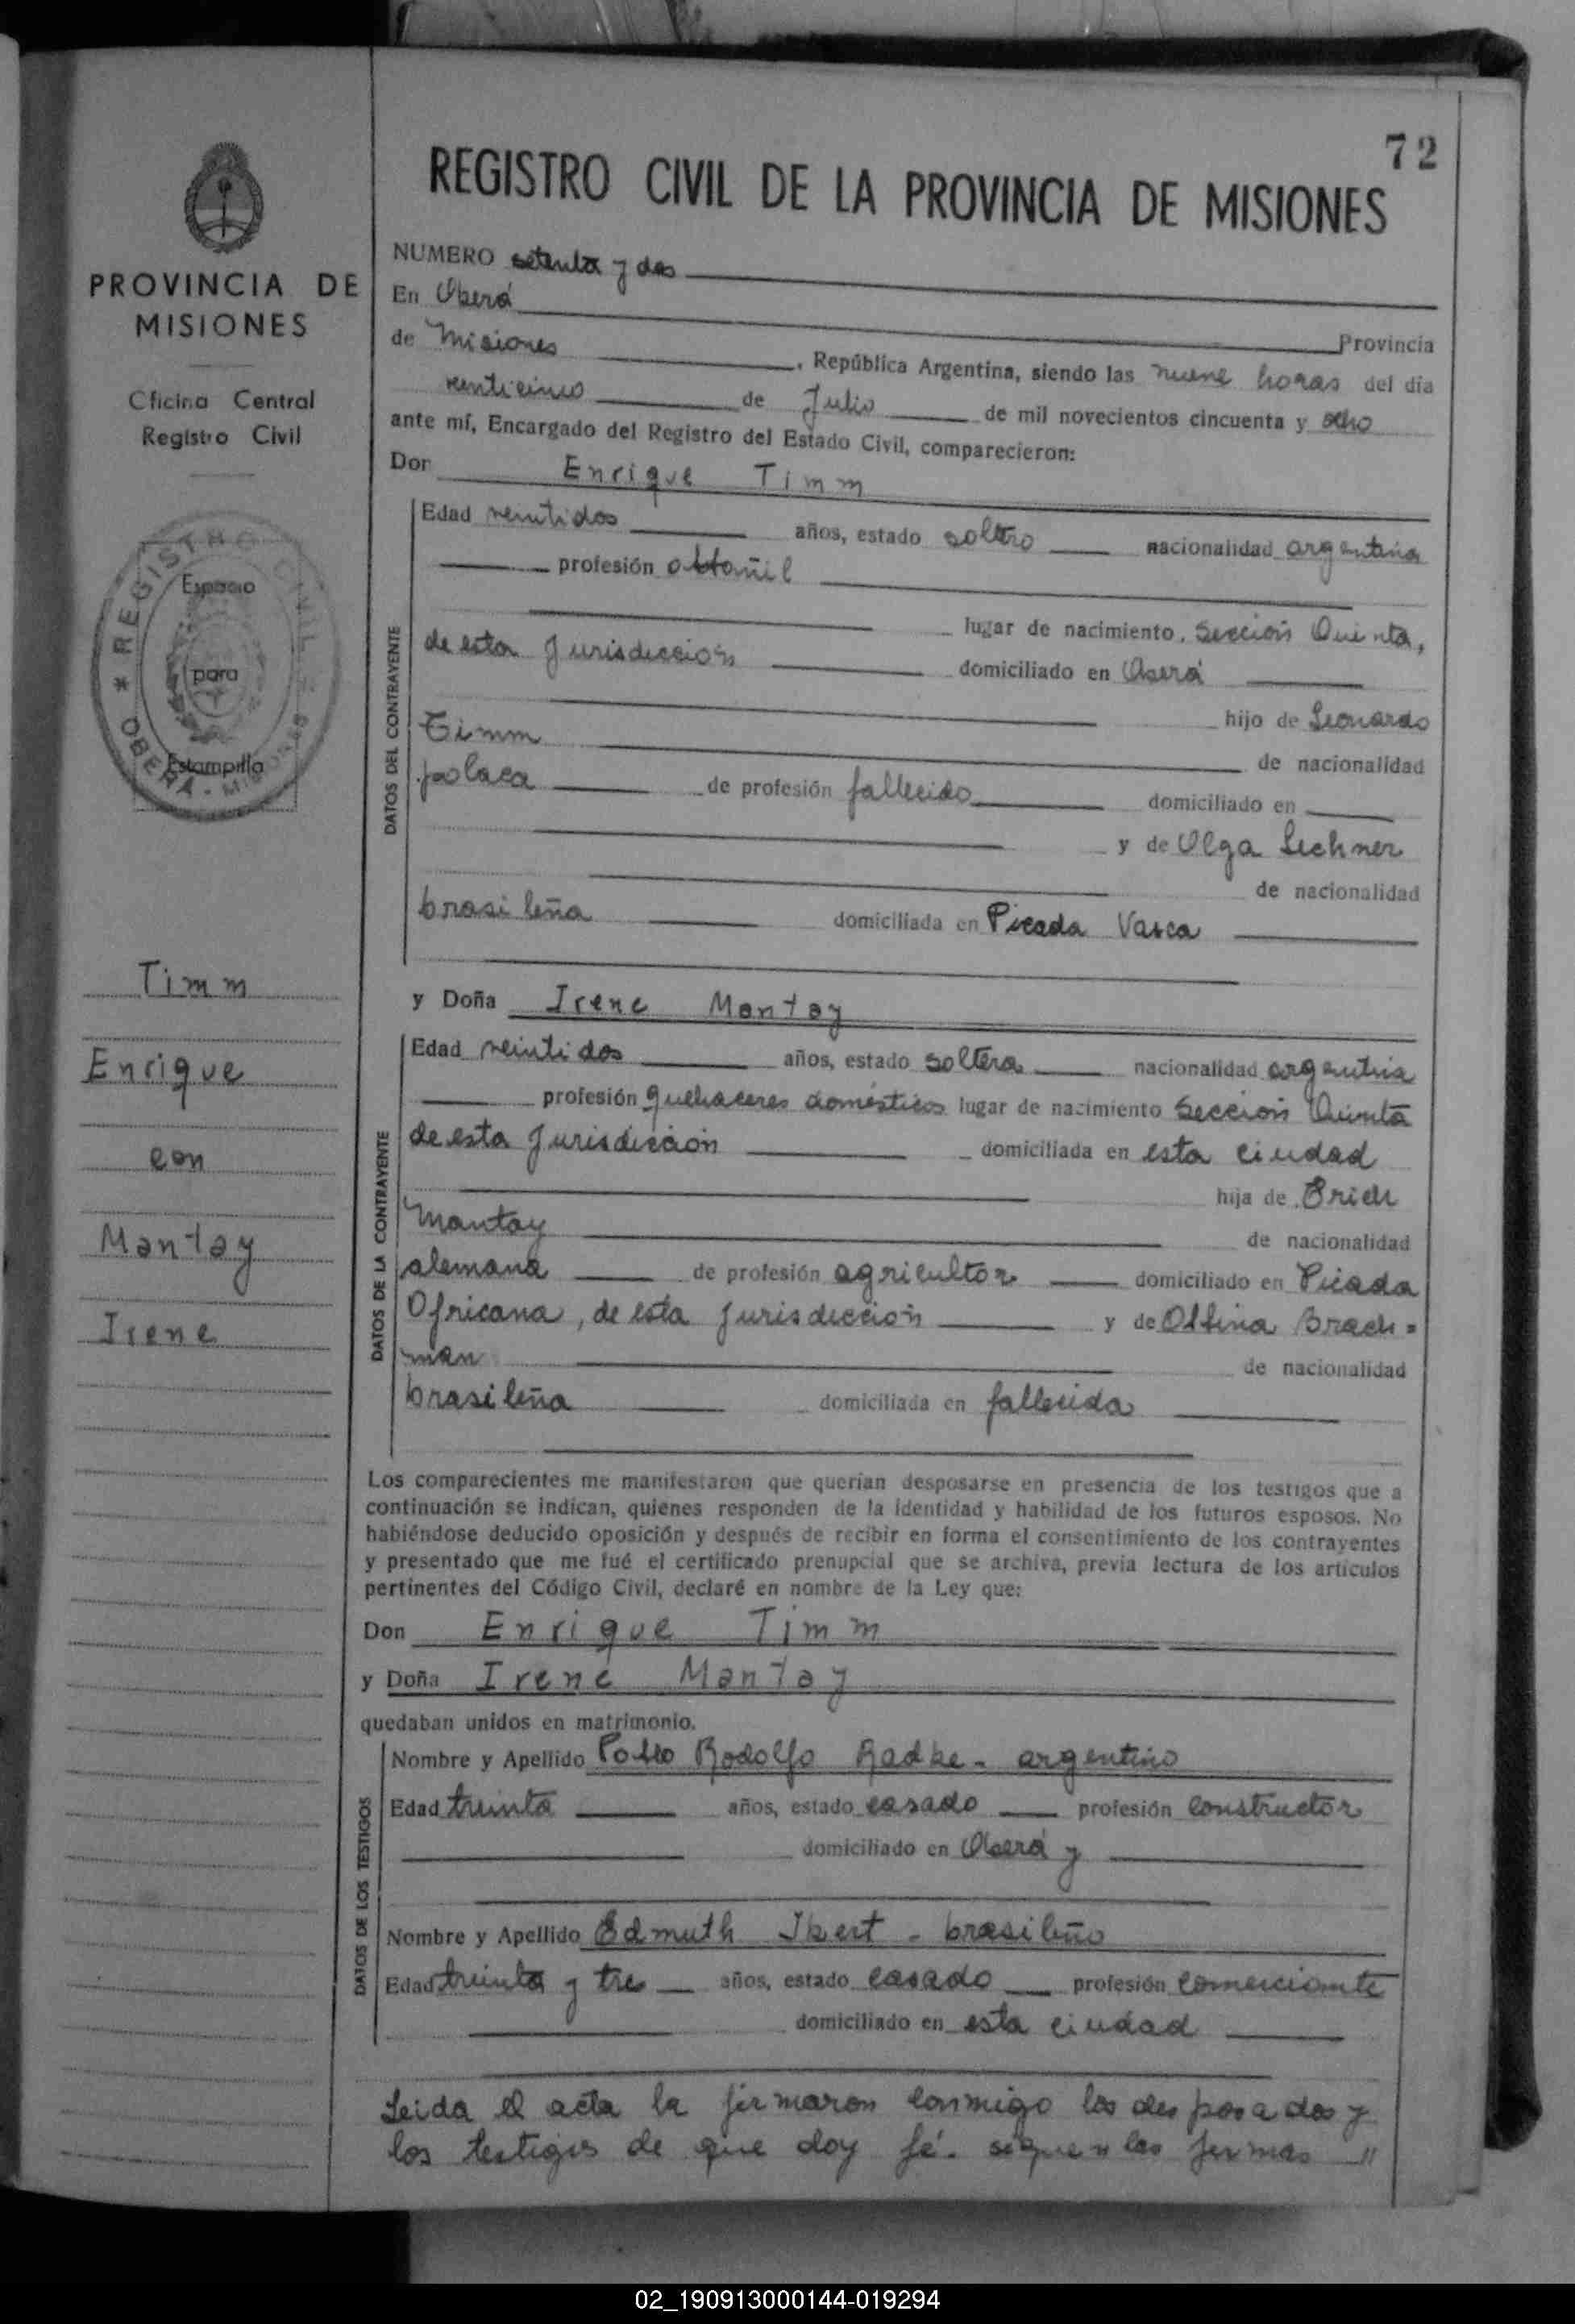 72
REGISTRO CIVIL DE LA PROVINCIA DE MISIONES
PROVINCIA DE
MISIONES
Oficina Central
Registro Civil
* REGISTRO CIVIL * OBERÁ - MISIONES
Espacio
para
Estampilla
Timm
Enrique
con
Mantay
Irene
NUMERO setenta y dos
En Oberá
Provincia
de Misiones, República Argentina, siendo las nueve horas del día
venticinco de Julio de mil novecientos cincuenta y ocho
ante mí, Encargado del Registro del Estado Civil, comparecieron:
Don Enrique Timm
DATOS DEL CONTRAYENTE
Edad veintidos años, estado soltero nacionalidad argentina
profesión albañil
lugar de nacimiento Sección Quinta,
de esta Jurisdicción domiciliado en Oberá
hijo de Leonardo
Timm de nacionalidad
polaca de profesión fallecido domiciliado en
y de Olga Lechner
de nacionalidad
brasileña domiciliada en Picada Vasca
y Doña Irene Mantay
DATOS DE LA CONTRAYENTE
Edad veintidos años, estado soltera nacionalidad argentina
profesión quehaceres domésticos lugar de nacimiento Sección Quinta
de esta Jurisdicción domiciliada en esta ciudad
hija de Erich
Mantay de nacionalidad
alemana de profesión agricultor domiciliado en Picada
Africana, de esta Jurisdicción y de Brach=
man de nacionalidad
brasileña domiciliada en fallecida
Los comparecientes me manifestaron que querían desposarse en presencia de los testigos que a
continuación se indican, quienes responden de la identidad y habilidad de los futuros esposos. No
habiéndose deducido oposición y después de recibir en forma el consentimiento de los contrayentes
y presentado que me fué el certificado prenupcial que se archiva, previa lectura de los artículos
pertinentes del Código Civil, declaré en nombre de la Ley que:
Don Enrique Timm
y Doña Irene Mantay
quedaban unidos en matrimonio.
DATOS DE LOS TESTIGOS
Nombre y Apellido Rodolfo Radke - argentino
Edad treinta años, estado casado profesión constructor
domiciliado en Oberá y
Nombre y Apellido Edmuth Ibert - brasileño
Edad treinta y tres años, estado casado profesión comerciante
domiciliado en esta ciudad
Leida el acta la firmaron conmigo los desposados y
los testigos de que doy fé. siguen las firmas //
02_190913000144-019294